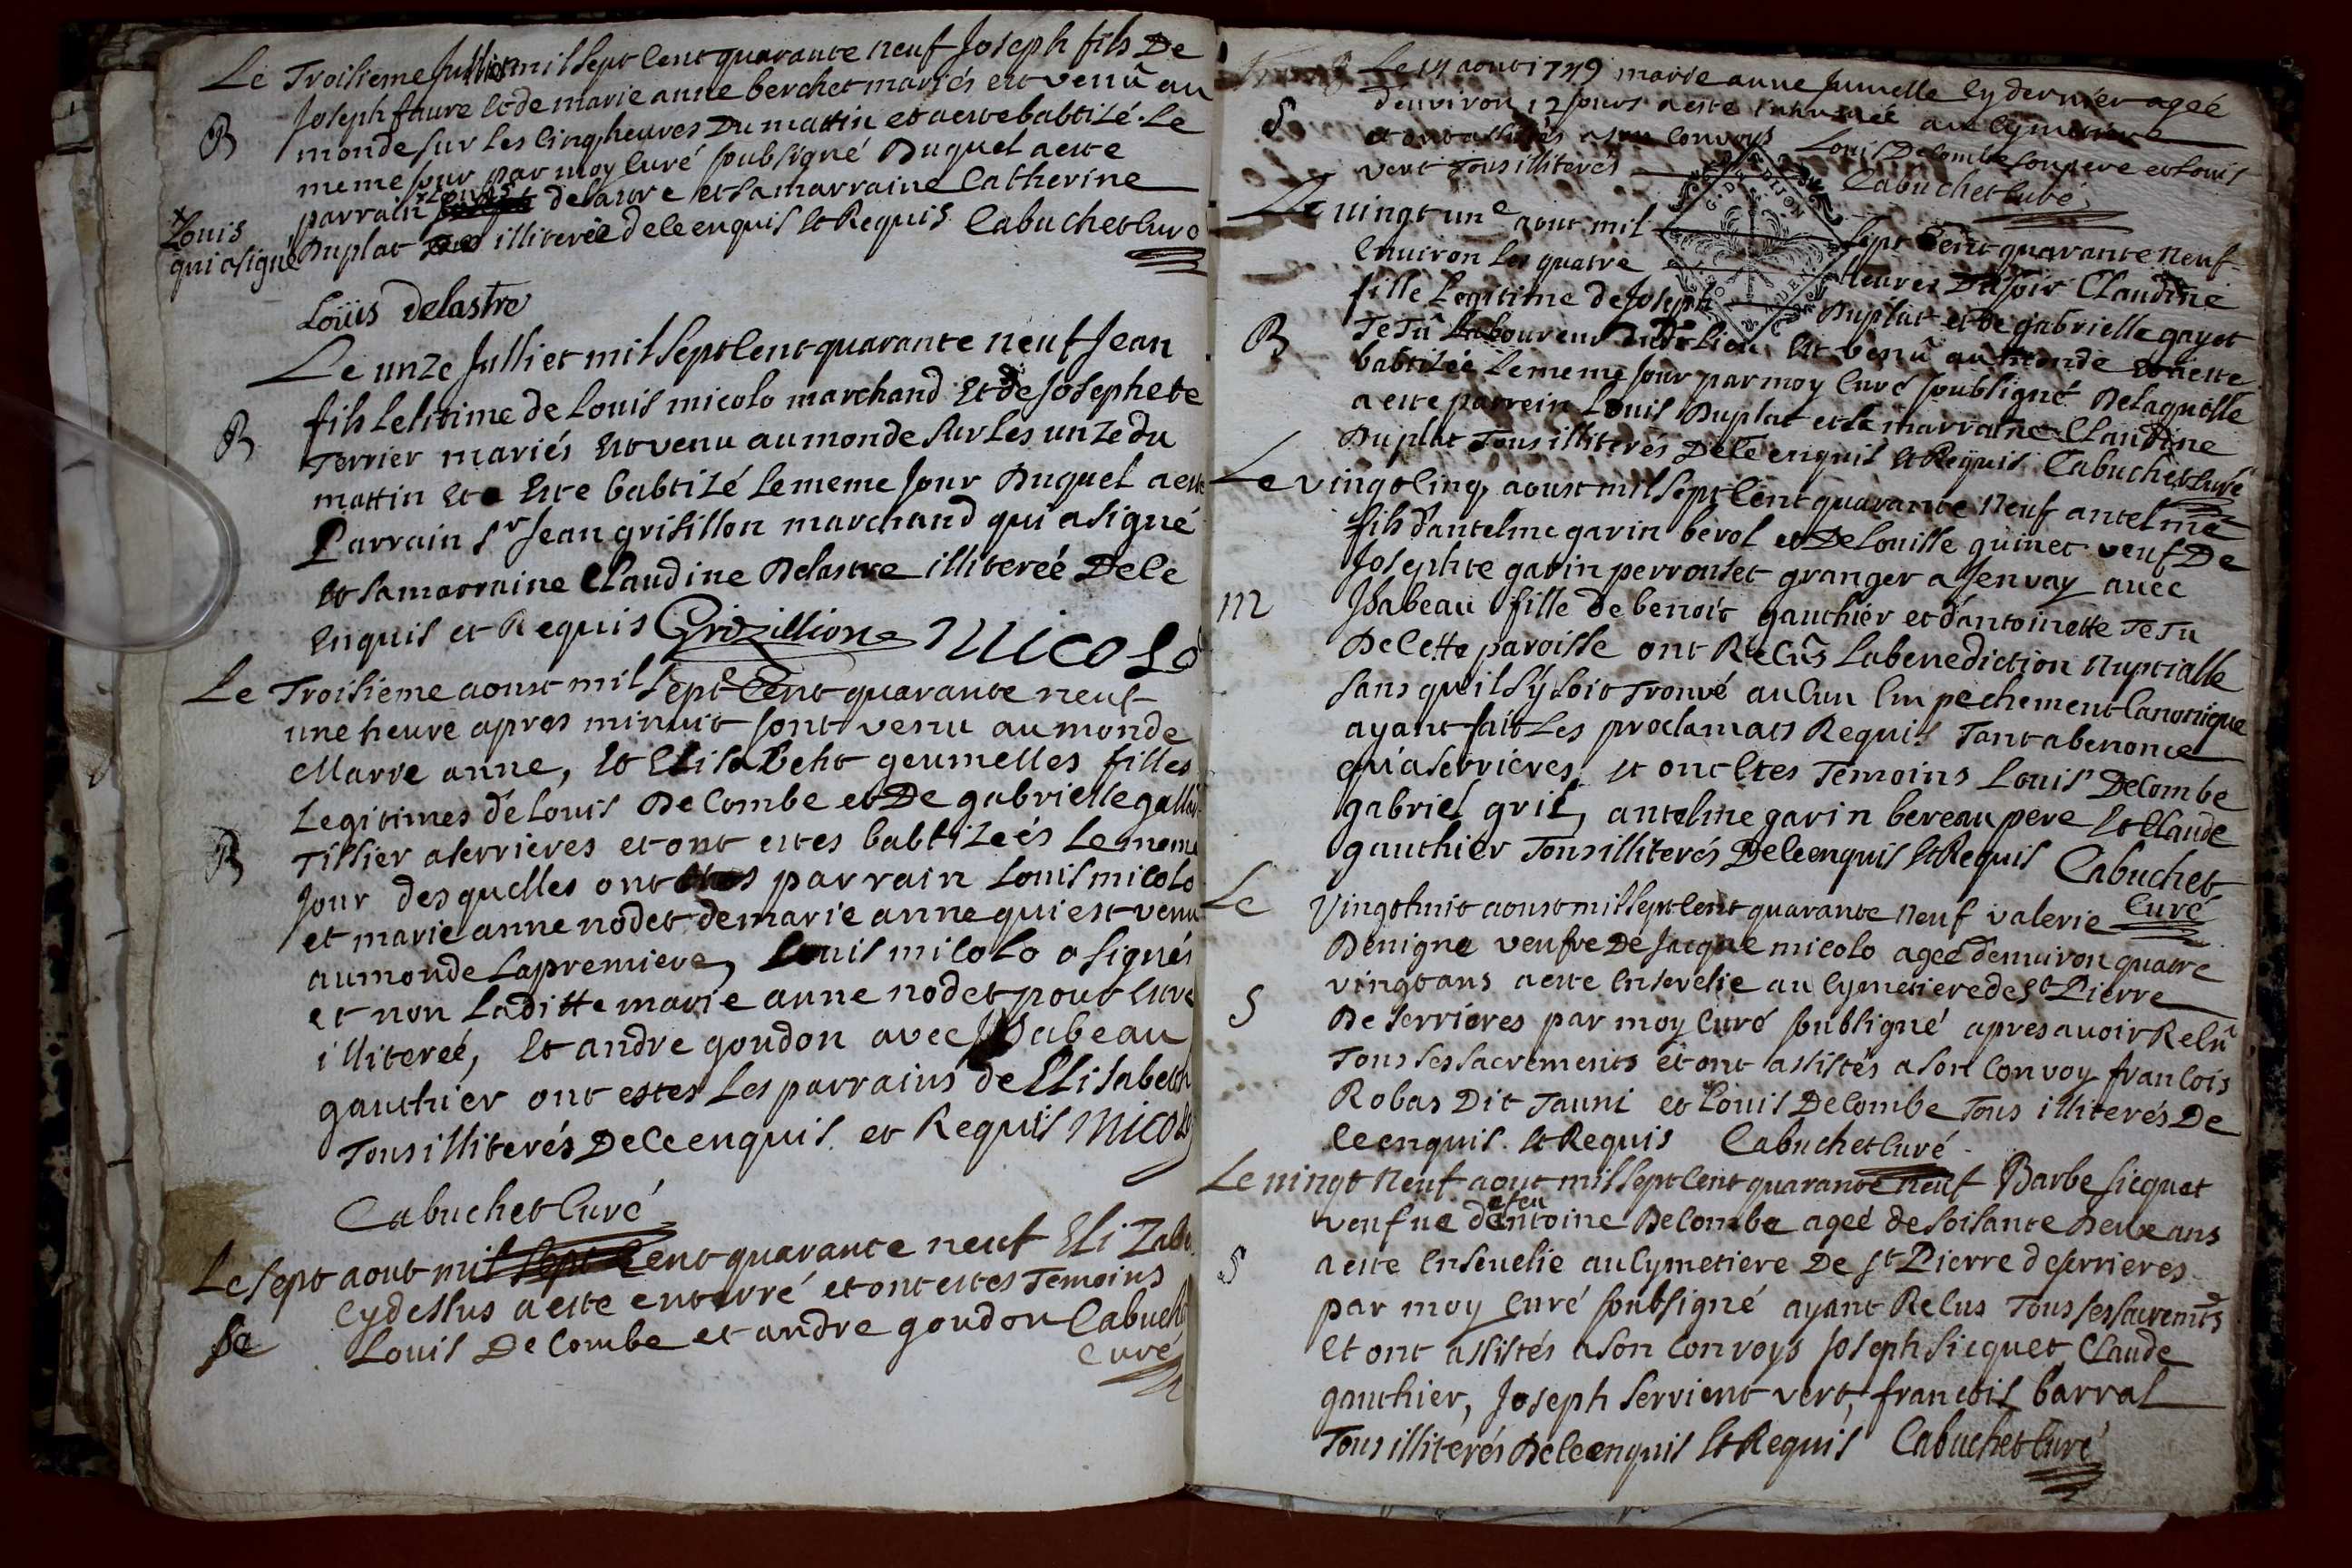 Le Troisieme Julliet mil sept cent quarante neuf Joseph fils De
Joseph faure et de marie anne berchet mariés est venû au
B monde sur les cinq heures Du mattin et a este babtizé. Le
meme jour par moy Curé soubsigné Duquel a este
parrain Louis delastre et sa marraine Catherine
x Louis qui a signé
Duplat illitereé de ce enquis et Requis Cabuchet Curé
Loüis delastre
Le unze Julliet mil sept cent quarante neuf Jean
fils lesitime de Louis micolo marchand et de Josephete
B Terrier mariés est venu au monde sur les unze du
mattin et a este babtizé le meme Jour Duquel a este
Parrain Sr Jean grisillon marchand qui a signé
et sa marraine Claudine Delastre illitereé De ce
Enquis et Requis Grizillion Micolo
Le Troisieme aoust mil sept Cent quarante neuf
une heure apres minuit sont venu au monde
Marie anne, et Elisabeht geumelles filles
Legitimes de Louis De Combe et De gabrielle
B Tissier a serrieres et ont estes babtizeés le meme
Jour desquelles ont estes parrain Louis micolo
et marie anne nodet de marie anne qui est venu
au monde la premiere, Louis micolo a signés
et non laditte marie anne nodet pour estre
illitereé, et andre goudon avec Isabeau
gauthier ont estes les parrains de Elisabeth
Tous illiterés De ce enquis et Requis Micolo
Cabuchet Curé
Le sept aout mil sept Cent quarante neuf
cy dessus a este enterré et ont estes Temoins
Se Louis De Combe et andre goudon Cabuchet
Curé
Le 14 aout 1749 marie anne Jumelle cy dernier ageé
S d'environ 12 jours a este au Cymetiere
et ont assistés a son Convoys Louis Decombe son pere et Louis
vert Tous illiterés Cabuchet Curé
G. D. DIJON
Le vingt une aout mil sept Cent quarante neuf
Environ les quatre heures Du soir Claudine
fille Legitime de Joseph Duplat et de gabrielle gayet
B TeTû Laboureur dudt Lieu est venû au monde et a este
babtizée le meme Jour par moy Curé soubsigné De laquelle
a este parrein Louis Duplat et sa marraine Claudine
Duplat Tous illiterés De ce enquis et Requis Cabuchet Curé
Le vingt cinq aoust mil sept Cent quarante neuf antelme
fils d'antelme garin berol et De Louisse guinet veuf De
Josephte garin perrouset granger a Jenvay avec
m Isabeau fille de benoit gauthier et d'antoinette TeTu
De Cette paroisse ont Recûs la benediction nuptialle
sans qu'il s'y soit trouvé aucun Enpechement Canonique
ayant fait les proclamats Requis Tant a benonce
qu'a serrieres, et ont Etes Temoins Louis DeCombe
gabriel gril, antelme garin bereau pere et Claude
gauthier Tous illiterés De ce enquis et Requis Cabuchet
Curé
Le vingt huit aoust mil sept cent quarante neuf valerie
Benigne veufve De Jacque micolo ageé d'environ quatre
vingt ans a este Ensevelie au Cymetiere de St Pierre
S De serrieres par moy Curé soubsigné apres avoir Recû
Tous ses sacrements et ont assistés a son Convoy francois
Robas Dit Tauni et Louis Decombe Tous illiterés De
ce enquis et Requis Cabuchet Curé
Le vingt neuf aout mil sept cent quarante neuf Barbe sicquet
veufue de feu entoine Decombe ageé de soisante Deux ans
S a este Ensevelie au Cymetiere De St Pierre de serrieres
par moy Curé soubsigné ayant Recus Tous ses sacremts
Et ont assistés a son Convoys Joseph sicquet Claude
gauthier, Joseph servient vert, francois barral
Tous illiterés De ce enquis et Requis Cabuchet Curé